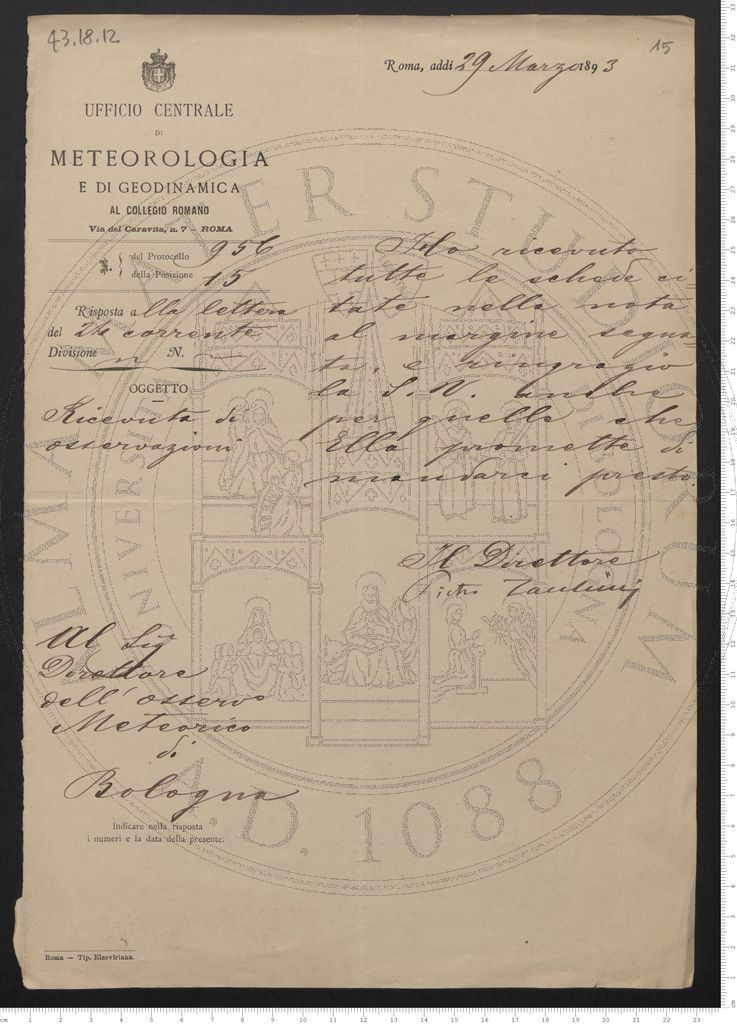 43.18.12
15
Roma, addi 29 Marzo 1893
UFFICIO CENTRALE
DI
METEOROLOGIA
E DI GEODINAMICA
AL COLLEGIO ROMANO
Via del Caravita, n. 7 – ROMA
N. } del Protocollo 956
della Posizione 15
Risposta alla lettera
del 26 corrente
Divisione " N.
OGGETTO
Ricevuta di
osservazioni
Ho ricevuto
tutte le schede ci-
tate nella nota
al margine segna-
ta, e ringrazio
la S. V. anche
per quelle che
Ella promette di
mandarci presto.
Il Direttore
Pietro Tacchini
Al Sig
Direttore
dell'osservo
Meteorico
di
Bologna
Indicare nella risposta
i numeri e la data della presente.
Roma — Tip. Elzeviriana.
ALMA MATER STUDIORUM
UNIVERSITÀ BOLOGNA
A.D. 1088